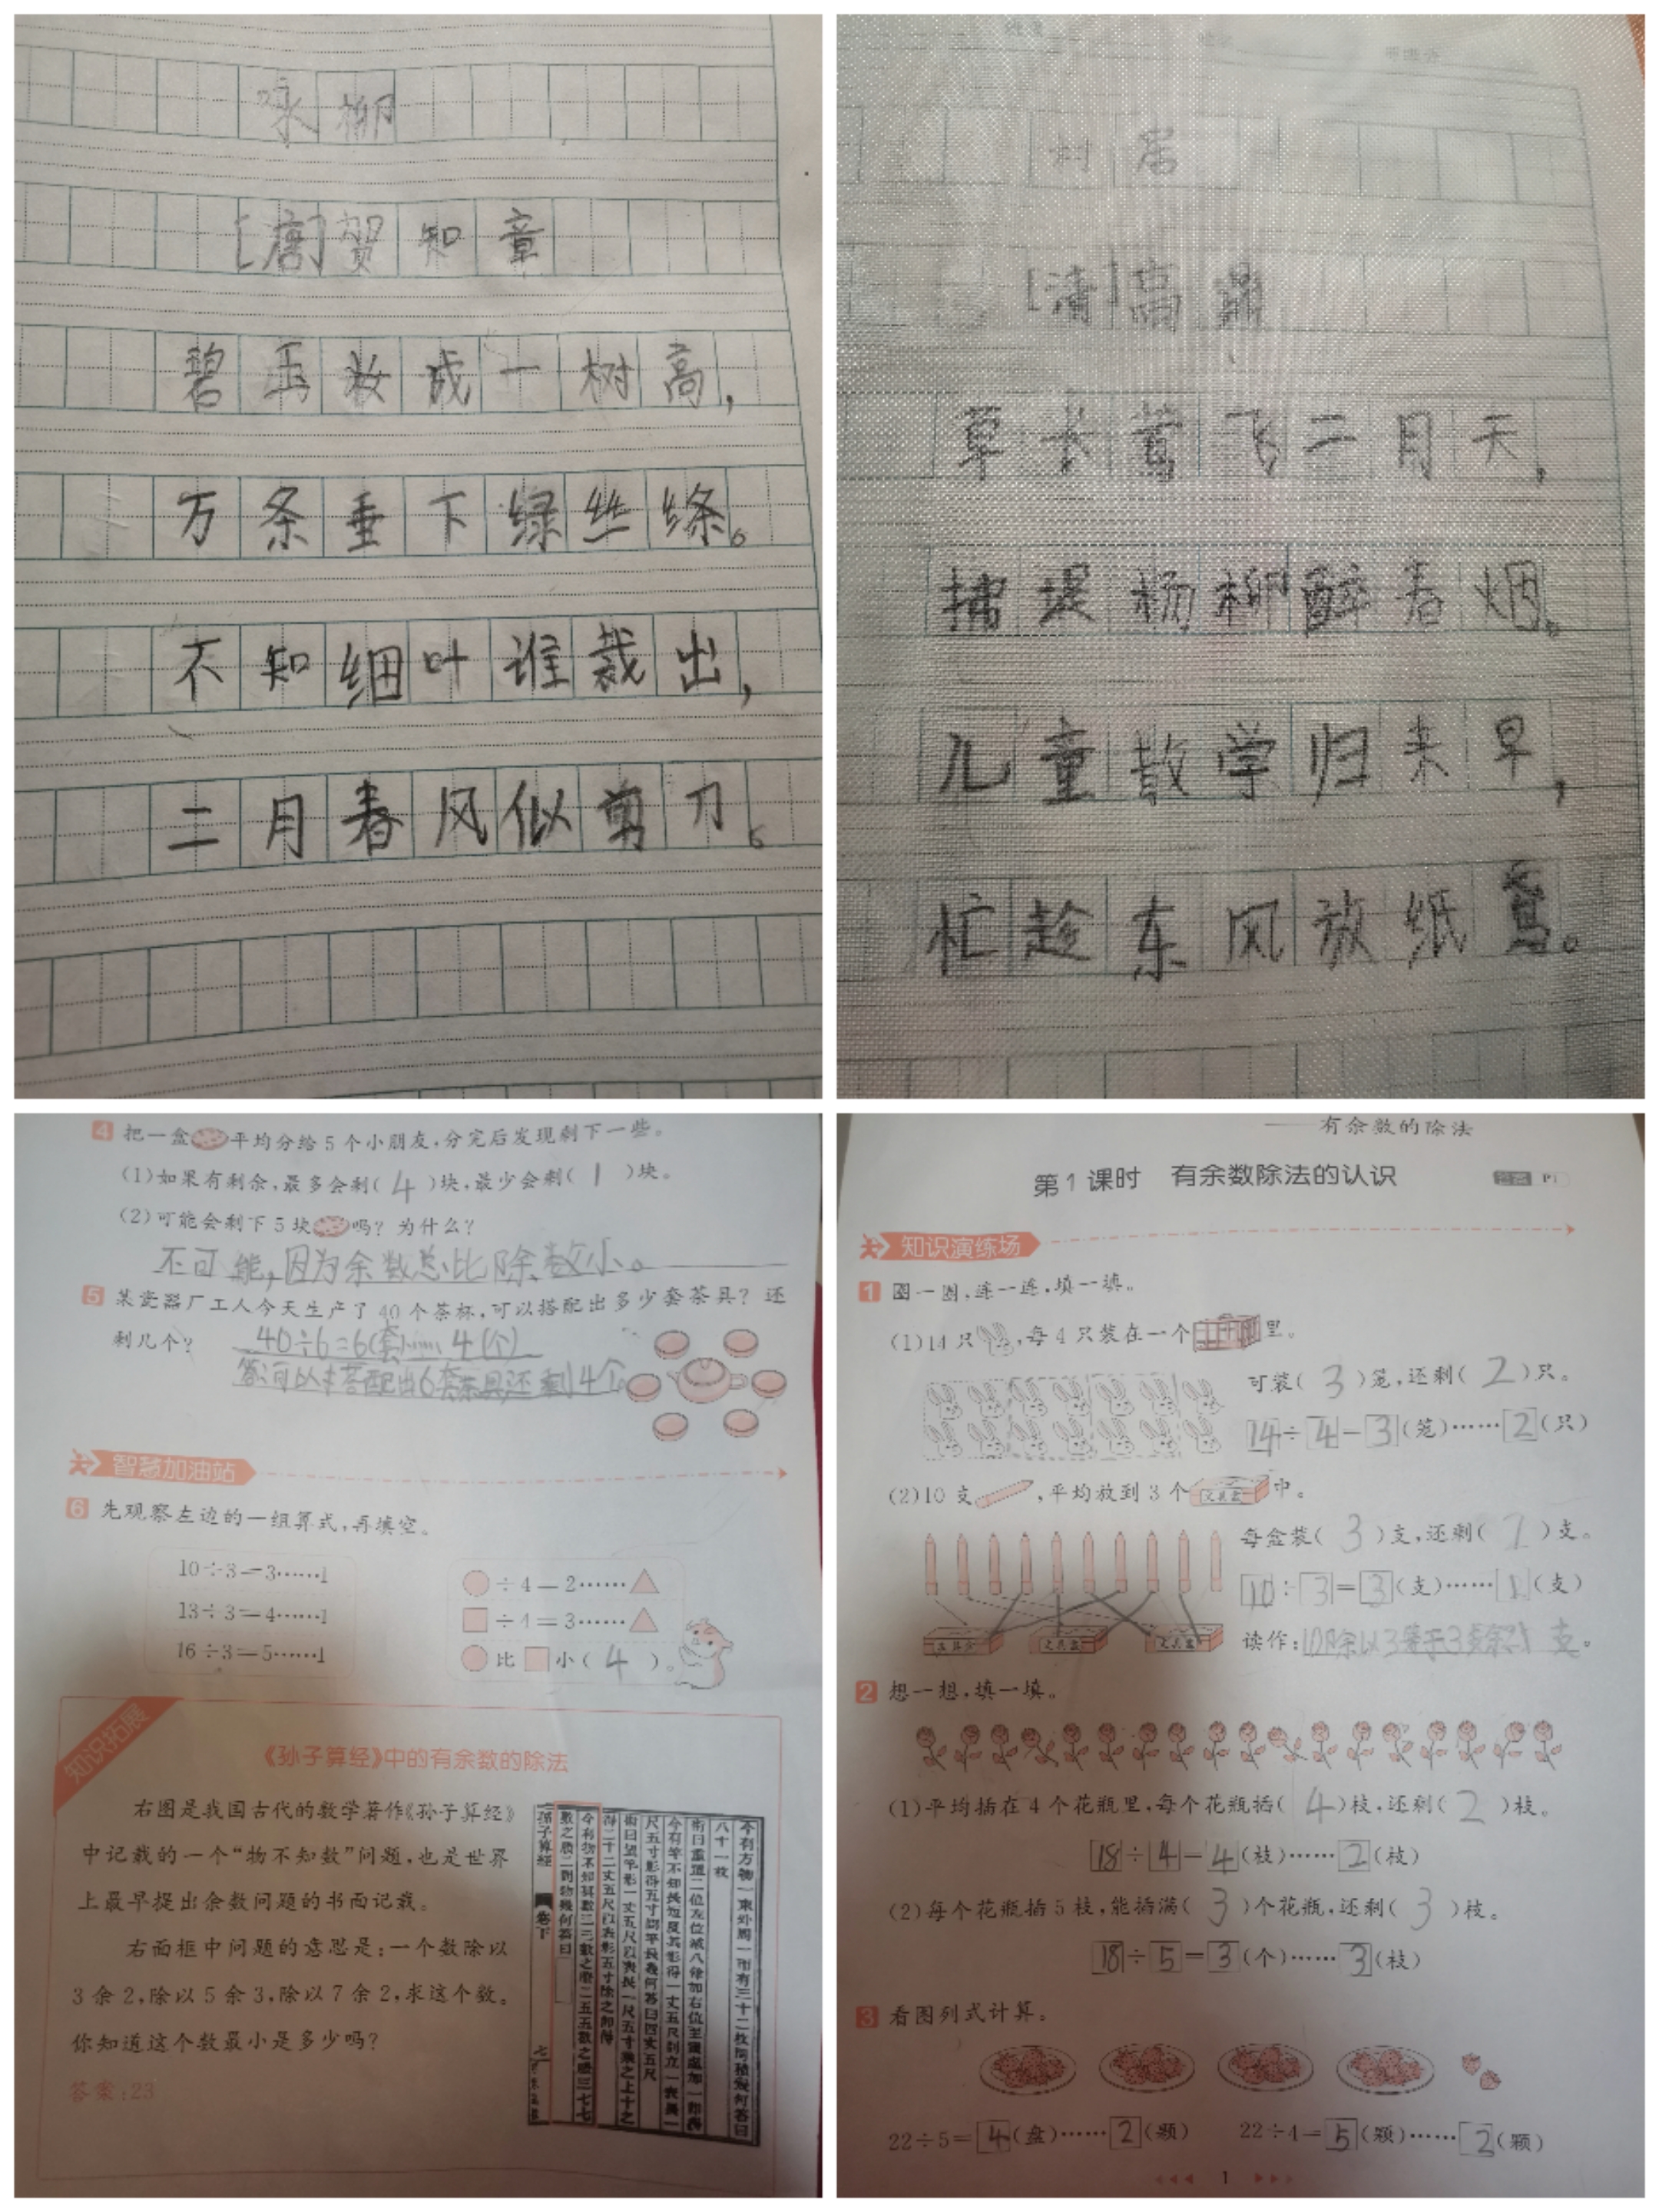 咏柳
[唐]贺知章
碧玉妆成一树高，
万条垂下绿丝绦。
不知细叶谁裁出，
二月春风似剪刀。
村居
[清]高鼎
草长莺飞二月天，
拂堤杨柳醉春烟。
儿童散学归来早，
忙趁东风放纸鸢。
4 把一盒平均分给5个小朋友,分完后发现剩下一些。
(1)如果有剩余,最多会剩( 4 )块,最少会剩( 1 )块。
(2)可能会剩下5块吗?为什么?
不可能,因为余数总比除数小。
5 某瓷器厂工人今天生产了40个茶杯,可以搭配出多少套茶具?还
剩几个?
40÷6=6(套)……4(个)
答:可以搭配出6套茶具,还剩4个
智慧加油站
6 先观察左边的一组算式,再填空。
10÷3=3……1
13÷3=4……1
16÷3=5……1
÷4=2……
÷4=3……
比 小( 4 )。
知识拓展
《孙子算经》中的有余数的除法
右图是我国古代的数学著作《孙子算经》
中记载的一个“物不知数”问题,也是世界
上最早提出余数问题的书面记载。
右面框中问题的意思是:一个数除以
3余2,除以5余3,除以7余2,求这个数。
你知道这个数最小是多少吗?
答案:23
孙子算经 卷下 七
——有余数的除法
第1课时 有余数除法的认识
答案 P1
知识演练场
1 圈一圈,连一连,填一填。
(1)14只,每4只装在一个里。
可装( 3 )笼,还剩( 2 )只。
14÷4=3(笼)……2(只)
(2)10支,平均放到3个中。
文具盒
每盒装( 3 )支,还剩( 1 )支。
10÷3=3(支)……1(支)
文具盒 文具盒 文具盒
读作:10除以3等于3支余 支。
2 想一想,填一填。
(1)平均插在4个花瓶里,每个花瓶插( 4 )枝,还剩( 2 )枝。
18÷4=4(枝)……2(枝)
(2)每个花瓶插5枝,能插满( 3 )个花瓶,还剩( 3 )枝。
18÷5=3(个)……3(枝)
3 看图列式计算。
22÷5=4(盘)……2(颗) 22÷4=5(颗)……2(颗)
1